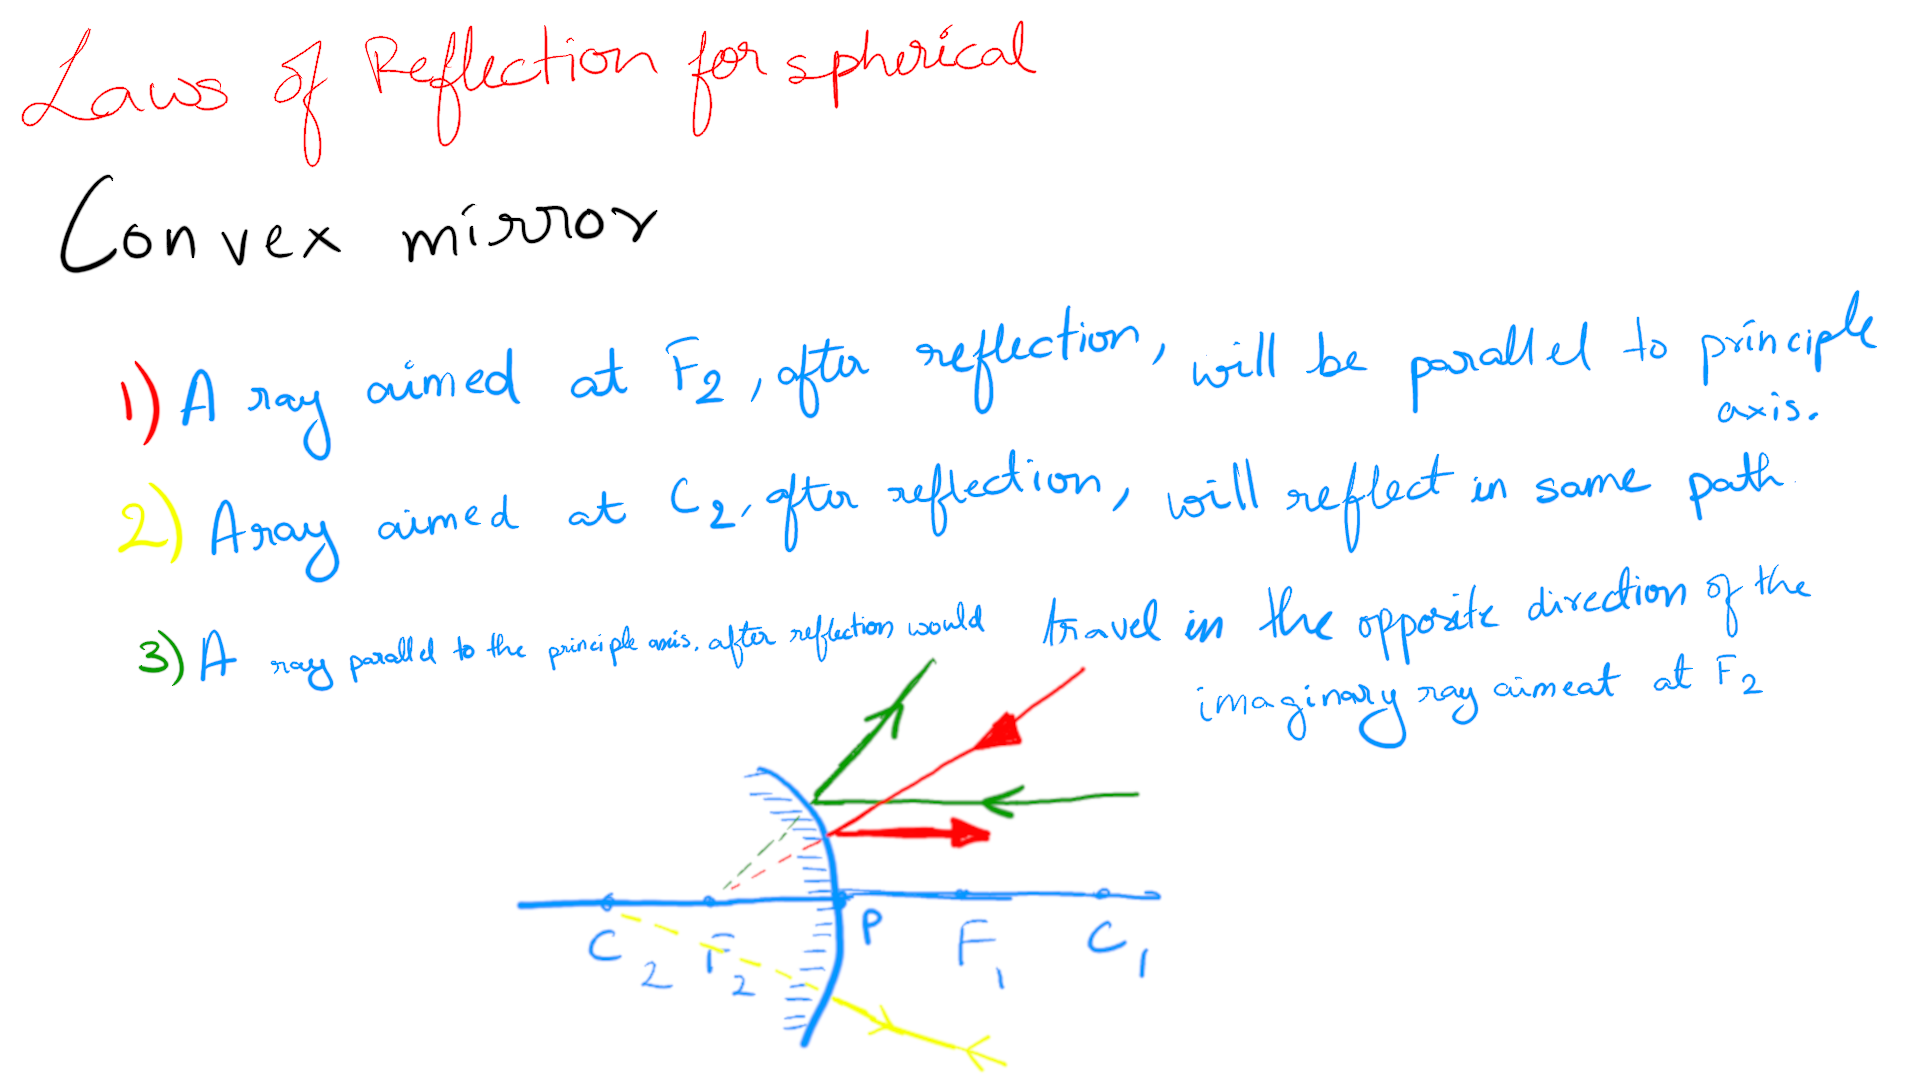 Laws of Reflection for spherical
Convex mirror
1) A ray aimed at F2, after reflection, will be parallel to principle
axis.
2) A ray aimed at C2, after reflection, will reflect in same path.
3) A ray parallel to the principle axis, after reflection would travel in the opposite direction of the
imaginary ray aimeat at F2
C2 F2 P F1 C1